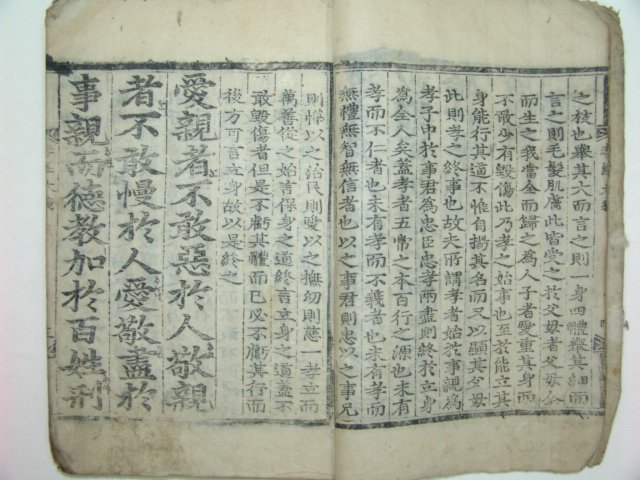 之枝也舉其大而言之則一身四體舉其細而
言之則毛髮肌膚此皆受之於父母者父母全
而生之我當全而歸之為人子者愛重其身而
不敢少有毀傷此乃孝之始事也至於能立其
身能行其道不惟自揚其名而又以顯其父母
此則孝之終事也故夫所謂孝者始於事親為
孝子中於事君為忠臣忠孝兩盡則終於立身
為全人矣蓋孝者五常之本百行之源也未有
孝而不仁者也未有孝而不義者也未有孝而
無禮無智無信者也以之事君則忠以之事兄
則悌以之治民則愛以之撫幼則慈一孝立而
萬善從之始言保身之道終言立身之道盖不
敢毀傷者但是不虧其體而已必不虧其行而
後方可言立身故以是終之
愛親者不敢惡於人敬親
者不敢慢於人愛敬盡於
事親而德教加於百姓刑